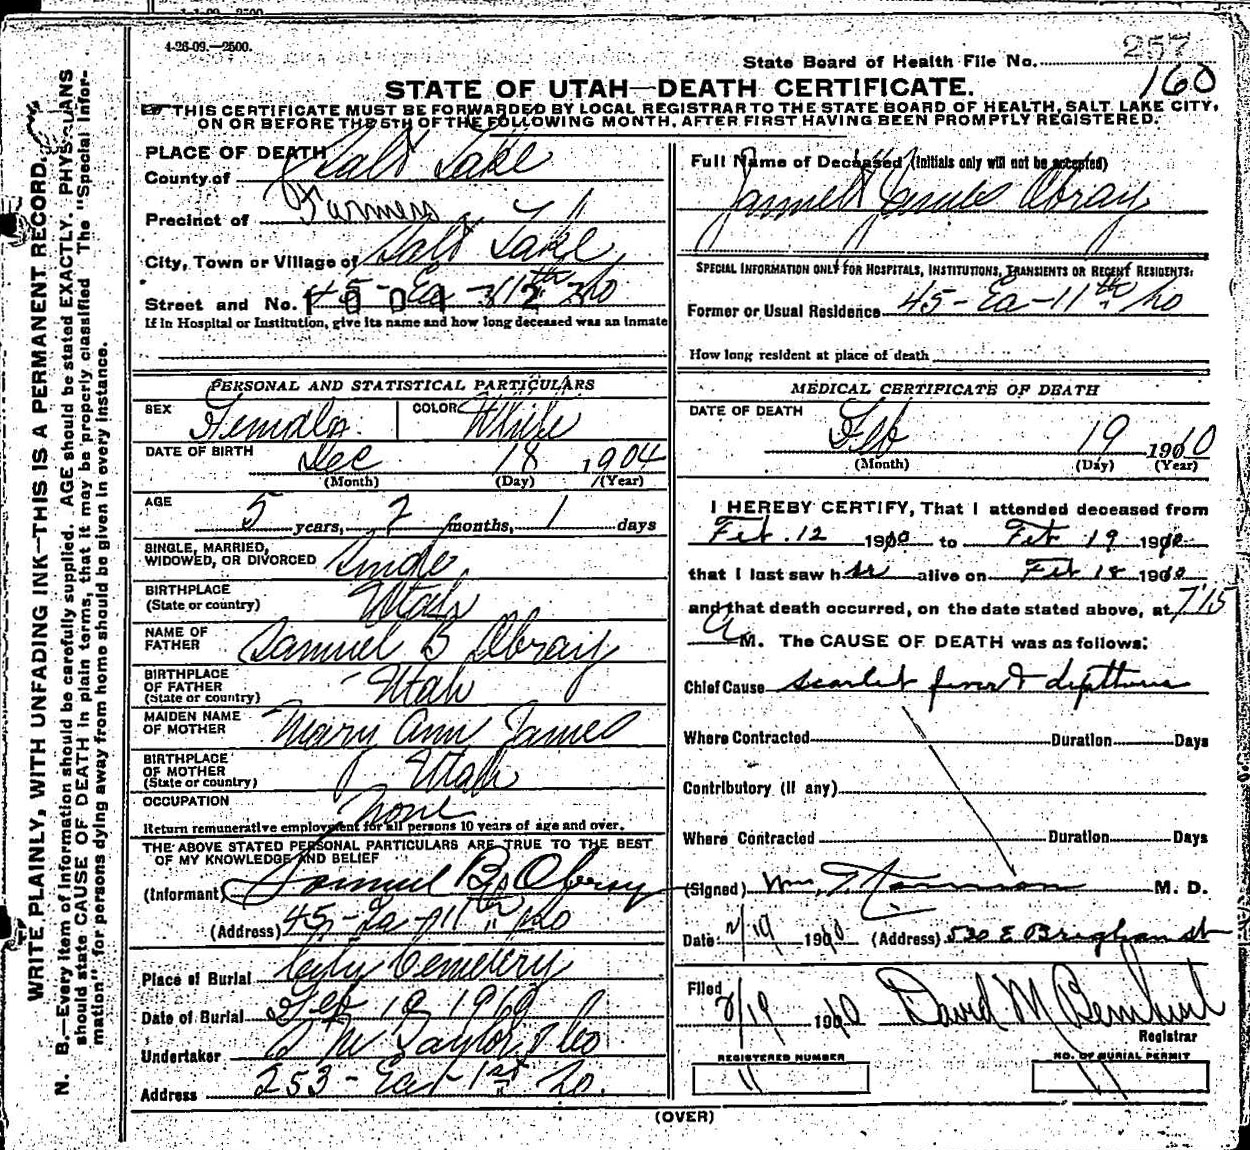 4-26-09.—2500.
257
State Board of Health File No.
160
STATE OF UTAH—DEATH CERTIFICATE.
THIS CERTIFICATE MUST BE FORWARDED BY LOCAL REGISTRAR TO THE STATE BOARD OF HEALTH, SALT LAKE CITY,
ON OR BEFORE THE 5TH OF THE FOLLOWING MONTH, AFTER FIRST HAVING BEEN PROMPTLY REGISTERED.
WRITE PLAINLY, WITH UNFADING INK—THIS IS A PERMANENT RECORD.
N. B.—Every item of information should be carefully supplied. AGE should be stated EXACTLY. PHYSICIANS
should state CAUSE OF DEATH in plain terms, that it may be properly classified. The "Special Infor-
mation" for persons dying away from home should be given in every instance.
PLACE OF DEATH
County of Salt Lake
Precinct of Farmers
City, Town or Village of Salt Lake
Street and No. 45 - Ea - 11th So
If in Hospital or Institution, give its name and how long deceased was an inmate
PERSONAL AND STATISTICAL PARTICULARS
SEX Female COLOR White
DATE OF BIRTH Dec 18 1904
(Month) (Day) (Year)
AGE 5 years, 2 months, 1 days
SINGLE, MARRIED,
WIDOWED, OR DIVORCED Single
BIRTHPLACE
(State or country) Utah
NAME OF
FATHER Samuel B Obray
BIRTHPLACE
OF FATHER
(State or country) Utah
MAIDEN NAME
OF MOTHER Mary Ann James
BIRTHPLACE
OF MOTHER
(State or country) Utah
OCCUPATION None
Return remunerative employment for all persons 10 years of age and over.
THE ABOVE STATED PERSONAL PARTICULARS ARE TRUE TO THE BEST
OF MY KNOWLEDGE AND BELIEF
(Informant) Samuel B. Obray
(Address) 45 - Ea - 11th So
Place of Burial City Cemetery
Date of Burial Feb 19 1910
Undertaker Taylor & Co
Address 253 - Ea - 1st So.
Full Name of Deceased (Initials only will not be accepted)
Obray
SPECIAL INFORMATION ONLY FOR HOSPITALS, INSTITUTIONS, TRANSIENTS OR RECENT RESIDENTS:
Former or Usual Residence 45 - Ea - 11th So
How long resident at place of death
MEDICAL CERTIFICATE OF DEATH
DATE OF DEATH Feb 19 1910
(Month) (Day) (Year)
I HEREBY CERTIFY, That I attended deceased from
Feb. 12 1910 to Feb 19 1910
that I last saw her alive on Feb 18 1910
and that death occurred, on the date stated above, at 7:15
A M. The CAUSE OF DEATH was as follows:
Chief Cause scarlet fever & diptheria
Where Contracted Duration Days
Contributory (if any)
Where Contracted Duration Days
(Signed) Wm. M. D.
Date 2/19 1910 (Address) 530 E Brigham st
Filed
2/19 1910 David M
Registrar
REGISTERED NUMBER NO. OF BURIAL PERMIT
11 11
(OVER)